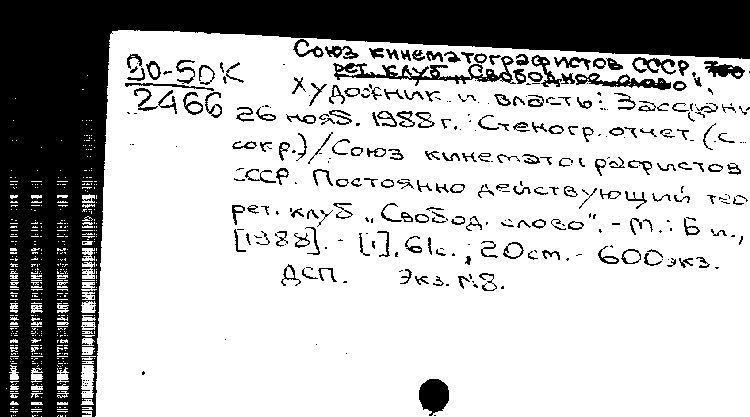 90-50К
2466
Союз кинематографистов СССР, Тео
рет. клуб „Свободное слово“.
Художник и власть: Заседани
26 нояб. 1988 г.: Стеногр. отчет (с
сокр.)/Союз кинематографистов
СССР. Постоянно действующий тео
рет. клуб „Свобод. слово“. - М.: Б и.,
[1988]. - [1], 61с.; 20 см. - 600 экз.
ДСП. Экз. №8.